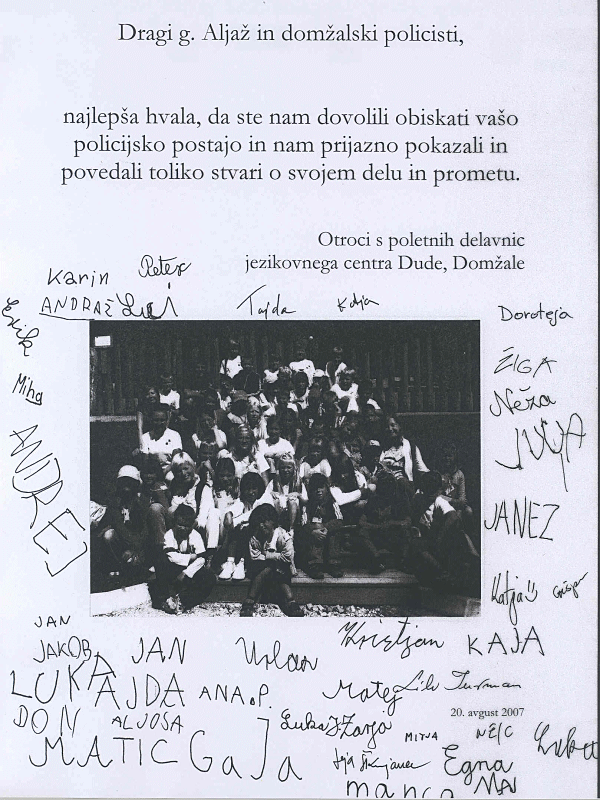 Dragi g. Aljaž in domžalski policisti,
najlepša hvala, da ste nam dovolili obiskati vašo
policijsko postajo in nam prijazno pokazali in
povedali toliko stvari o svojem delu in prometu.
Otroci s poletnih delavnic
jezikovnega centra Dude, Domžale
Karin Peter
ANDRAŽ Tajda Katja
Doroteja
Erik
ŽIGA
Miha
Neža
ANDREJ
JANEZ
Katja Gašper
JAN
JAKOB JAN Urban Kristjan KAJA
LUKA AJDA ANA.P. Matej Lili Furman
20. avgust 2007
DON ALJOSA Luka Zarja MITJA NEJC Luka
MATIC GaJa Egna
manca MAJ